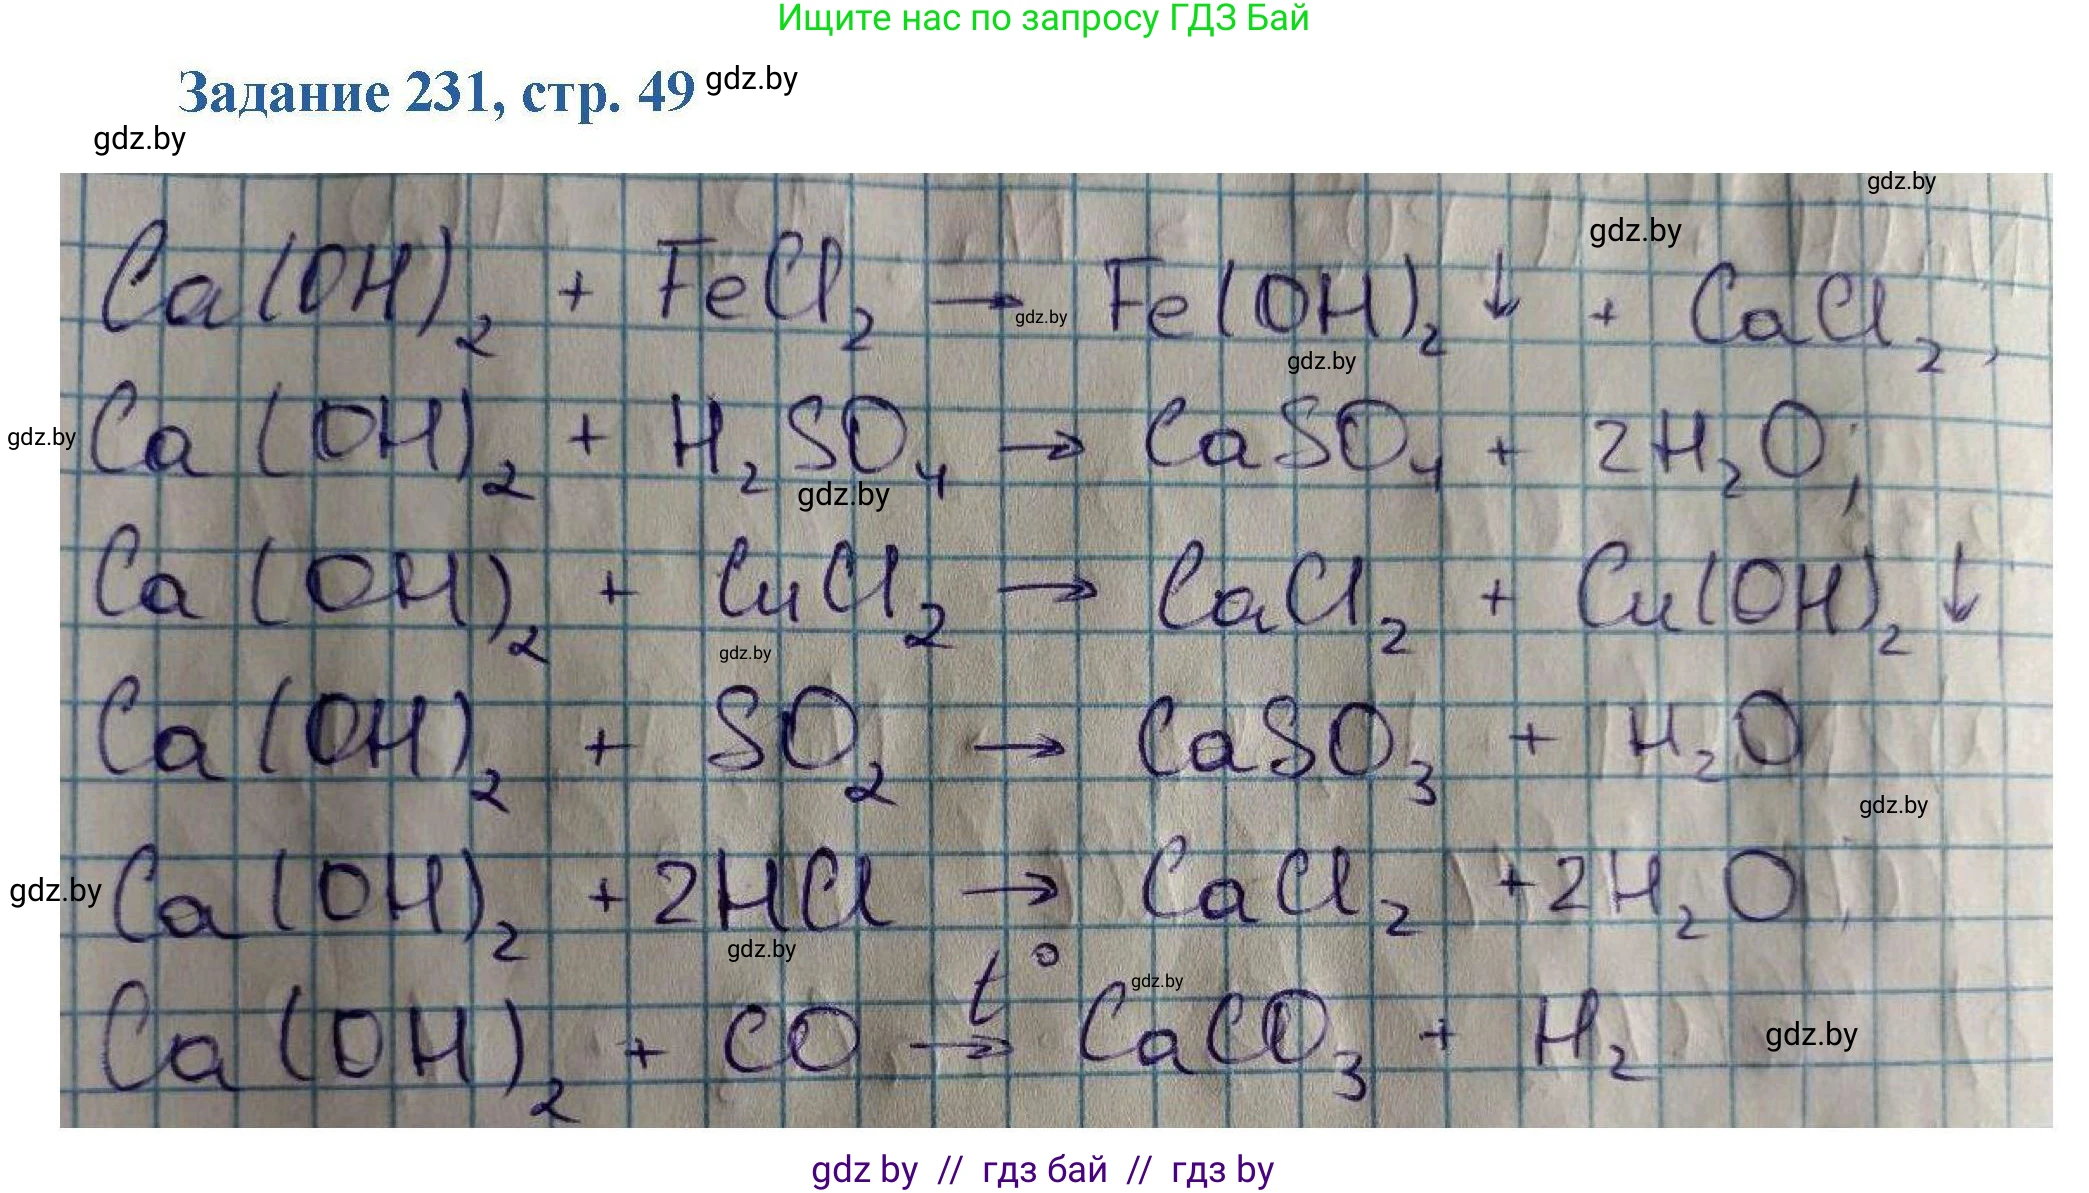 Ищите нас по запросу ГДЗ Бай
Задание 231, стр. 49 gdz.by
gdz.by
gdz.by
gdz.by
Ca(OH)₂ + FeCl₂ → Fe(OH)₂↓ + CaCl₂,
gdz.by
gdz.by
gdz.by Ca(OH)₂ + H₂SO₄ → CaSO₄ + 2H₂O;
gdz.by
Ca(OH)₂ + CuCl₂ → CaCl₂ + Cu(OH)₂↓
gdz.by
Ca(OH)₂ + SO₂ → CaSO₃ + H₂O
gdz.by
gdz.by Ca(OH)₂ + 2HCl → CaCl₂ + 2H₂O;
gdz.by
gdz.by
Ca(OH)₂ + CO →t° CaCO₃ + H₂
gdz.by
gdz by // гдз бай // гдз by